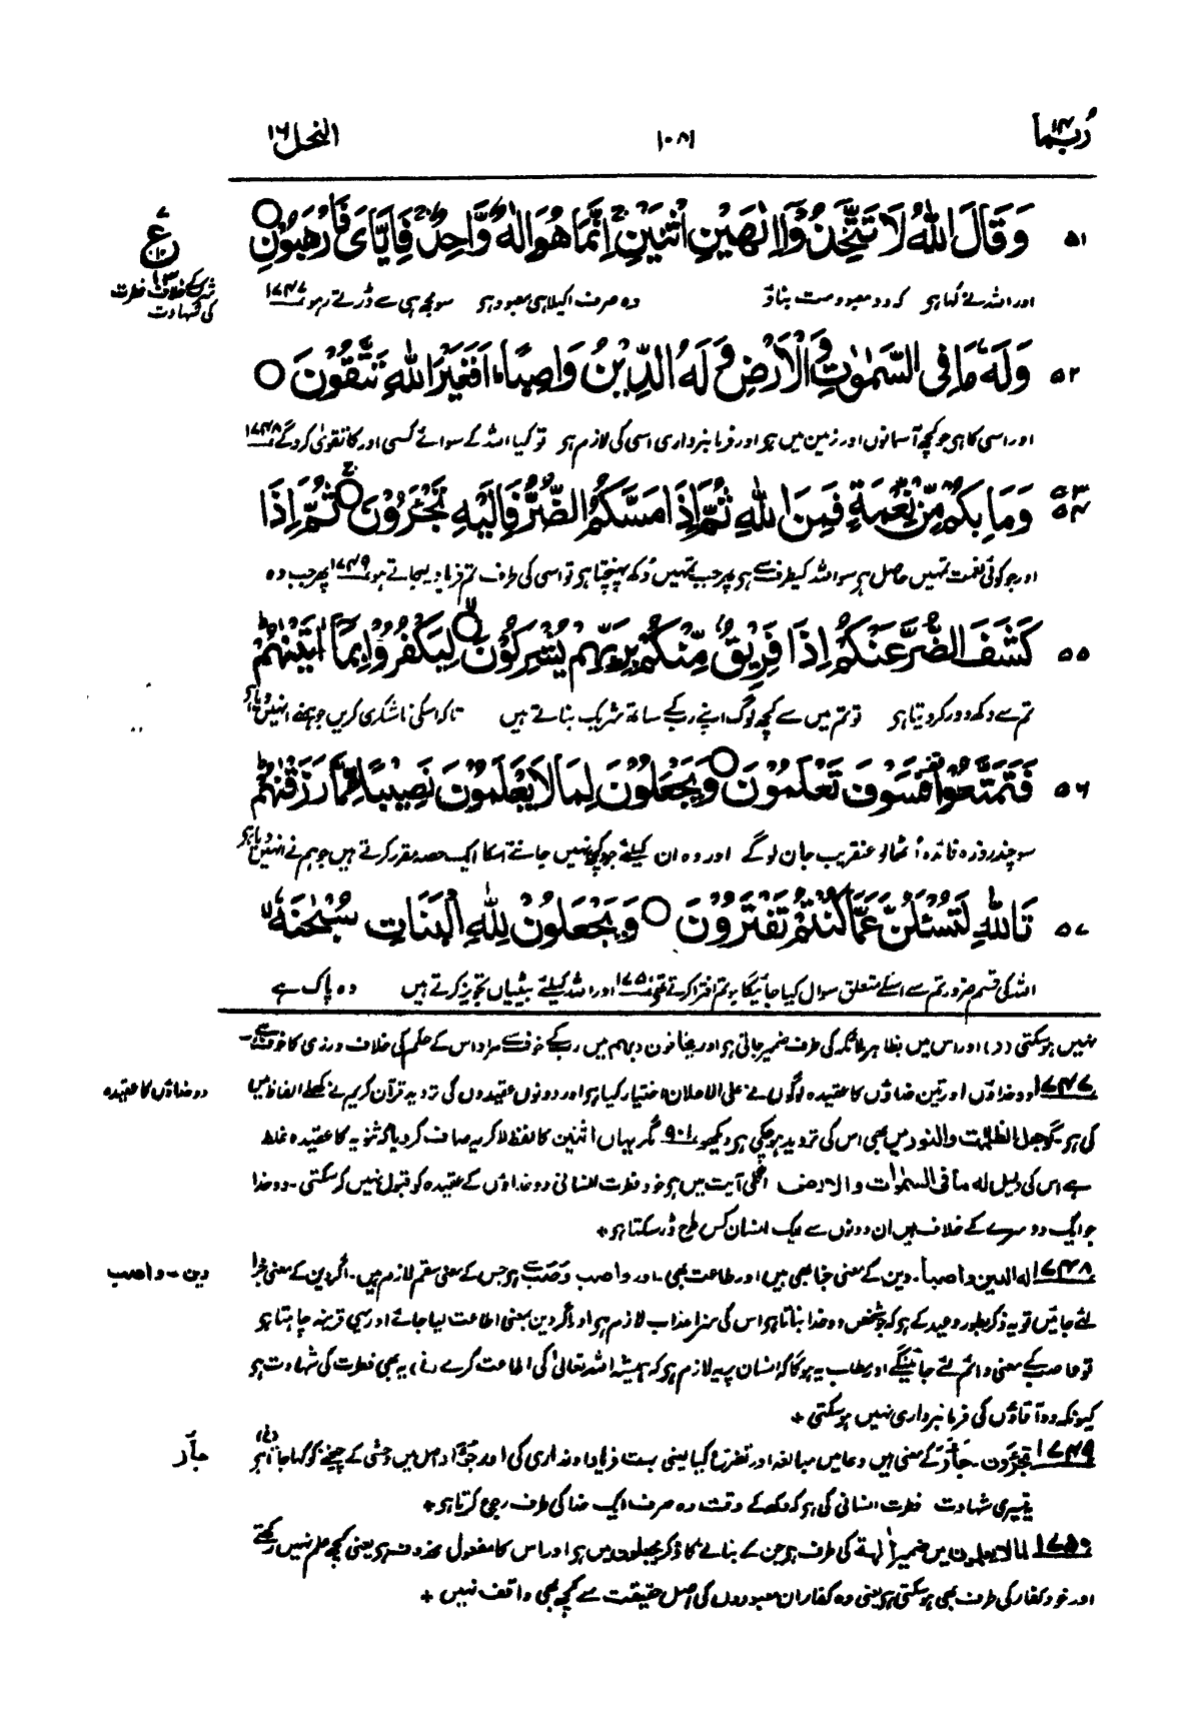 رُبَمَا ۱۴
۱۰۸۱
النحل ۱۶
۵۱ وَقَالَ اللّٰهُ لَا تَتَّخِذُوْٓا اِلٰهَيْنِ اثْنَيْنِ ۚ اِنَّمَا هُوَ اِلٰهٌ وَّاحِدٌ ۚ فَاِيَّايَ فَارْهَبُوْنِ ○
ع
شرک کے خلاف فطرت
کی شہادت
اور اللہ نے کہا ہو کہ دو معبود مت بناؤ وہ صرف اکیلا ہی معبود ہو سو مجھ ہی سے ڈرتے رہو ۱۷۴۷
۵۲ وَلَهٗ مَا فِي السَّمٰوٰتِ وَالْاَرْضِ وَلَهُ الدِّيْنُ وَاصِبًا ؕ اَفَغَيْرَ اللّٰهِ تَتَّقُوْنَ ○
اور اسی کا ہی جو کچھ آسمانوں اور زمین میں ہو اور فرمانبرداری اسی کی لازم ہو تو کیا اللہ کے سوائے کسی اور کا تقویٰ کرو گے ۱۷۴۸
۵۳ ۵۴ وَمَا بِكُمْ مِّنْ نِّعْمَةٍ فَمِنَ اللّٰهِ ثُمَّ اِذَا مَسَّكُمُ الضُّرُّ فَاِلَيْهِ تَجْـَٔرُوْنَ ○ ثُمَّ اِذَا
اور جو کوئی نعمت تمہیں حاصل ہو سو اللہ کیطرف سے ہو پھر جب تمہیں دُکھ پہنچتا ہو تو اسی کی طرف تم فریاد لیجاتے ہو ۱۷۴۹ پھر جب وہ
۵۵ كَشَفَ الضُّرَّ عَنْكُمْ اِذَا فَرِيْقٌ مِّنْكُمْ بِرَبِّهِمْ يُشْرِكُوْنَ ○ لِيَكْفُرُوْا بِمَآ اٰتَيْنٰهُمْ ؕ
تم سے دکھ دور کر دیتا ہو تو تم میں سے کچھ لوگ اپنے رب کے ساتھ شریک بناتے ہیں تاکہ اسکی ناشکری کریں جو ہمنے انہیں دیا ہو
۵۶ فَتَمَتَّعُوْا فَسَوْفَ تَعْلَمُوْنَ ○ وَيَجْعَلُوْنَ لِمَا لَا يَعْلَمُوْنَ نَصِيْبًا مِّمَّا رَزَقْنٰهُمْ ؕ
سو چند روزہ فائدہ اُٹھا لو عنقریب جان لو گے اور وہ ان کیلئے جو کچھ نہیں جانتے اسکا ایک حصہ مقرر کرتے ہیں جو ہم نے انہیں دیا ہو
۵۷ تَاللّٰهِ لَتُسْـَٔلُنَّ عَمَّا كُنْتُمْ تَفْتَرُوْنَ ○ وَيَجْعَلُوْنَ لِلّٰهِ الْبَنَاتِ سُبْحٰنَهٗ ۙ
اللہ کی قسم ضرور تم سے اسکے متعلق سوال کیا جائیگا جو تم افترا کرتے تھے ۱۷۵۰ اور اللہ کیلئے بیٹیاں تجویز کرتے ہیں وہ پاک ہے
نہیں ہو سکتی (د) اور اس میں بظاہر ملائکہ کی طرف ضمیر جاتی ہو اور یخافون ربہم میں رب کے خوف سے مراد اس کے حکم کی خلاف ورزی کا خوف ہے۔
۱۷۴۷ دو خداؤں اور تین خداؤں کا عقیدہ لوگوں نے علی الاعلان اختیار کیا ہو اور دونوں عقیدوں کی تردید قرآن کریم نے کھلے الفاظ میں
دو خداؤں کا عقیدہ
کی ہو۔ گو جعل الظلمٰت والنور میں بھی اس کی تردید ہو چکی ہو دیکھو ۹۰۱ مگر یہاں اثنین کا لفظ لا کر یہ صاف کر دیا کہ ثنویہ کا عقیدہ غلط
ہے اس کی دلیل لہ ما فی السمٰوات والارض اگلی آیت میں ہو خود فطرت انسانی دو خداؤں کے عقیدہ کو قبول نہیں کر سکتی۔ دو خدا
جو ایک دوسرے کے خلاف ہیں ان دونوں سے ایک انسان کس طرح ڈر سکتا ہو +
۱۷۴۸ لہ الدین واصباً۔ دین کے معنی جزا بھی ہیں اور طاعت بھی۔ اور واصب وَصَب سے ہو جس کے معنی سقم لازم ہیں۔ اگر دین کے معنی جزا
دین - واصب
لئے جائیں تو یہ ذکر بطور وعید کے ہو کہ جو شخص دو خدا بناتا ہو اس کی سزا عذاب لازم ہو اور اگر دین بمعنی اطاعت لیا جائے اور یہی قرینہ چاہتا ہو
تو واصب کے معنی دائم لئے جائینگے اور مطلب یہ ہو گا کہ انسان پر یہ لازم ہو کہ ہمیشہ اللہ تعالیٰ کی اطاعت کرے (غ) یہ بھی فطرت کی شہادت ہو
کیونکہ دو آقاؤں کی فرمانبرداری نہیں ہو سکتی +
۱۷۴۹ تجئرون۔ جَأَرَ کے معنی ہیں دعا میں مبالغہ اور تضرع کیا یعنی بہت فریاد اور زاری کی اور دراصل میں وحشی کے چیخنے کو کہا جاتا ہو (غ)
جأر
یہ تیسری شہادت فطرت انسانی کی ہو کہ دکھ کے وقت وہ صرف ایک خدا کی طرف رجوع کرتا ہو +
۱۷۵۰ لما لا یعلمون میں ضمیر اٰلہۃ کی طرف ہو جن کے بنانے کا ذکر یجعلون میں ہو اور اس کا مفعول محذوف ہو یعنی کچھ علم نہیں رکھتے
اور خود کفار کی طرف بھی ہو سکتی ہو یعنی وہ کفار ان معبودوں کی اصل حقیقت سے کچھ بھی واقف نہیں +